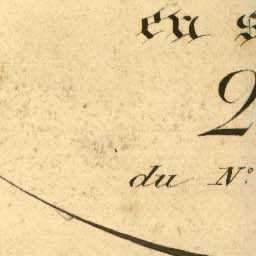 en s
2
du N°